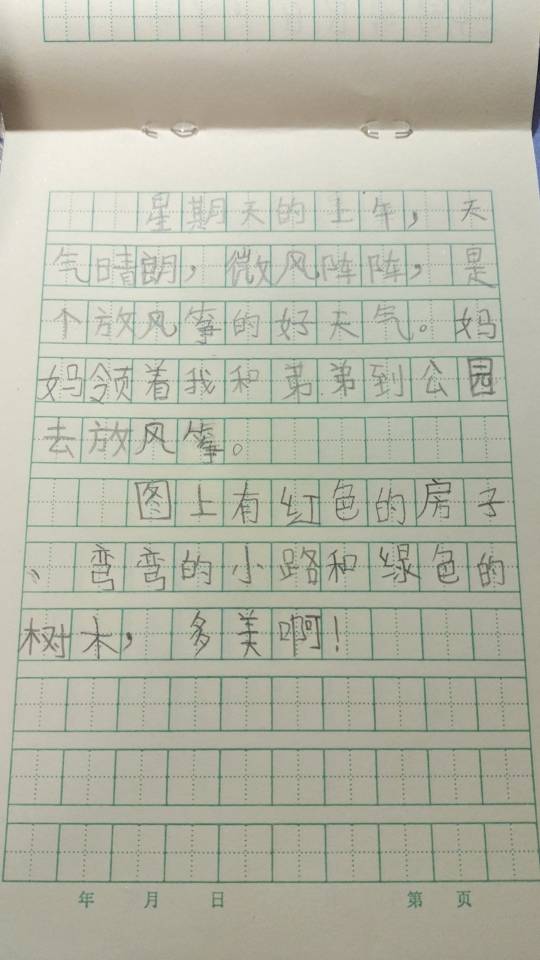 星期天的上午，天
气晴朗，微风阵阵，是
个放风筝的好天气。妈
妈领着我和弟弟到公园
去放风筝。
图上有红色的房子
、弯弯的小路和绿色的
树木，多美啊！
年 月 日 第 页